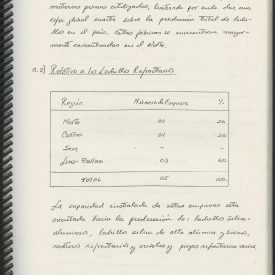 materias primas utilizadas, limitando por ende dar una
cifra global exacta sobre la producción total de ladri-
llos en el país. Estas fábricas se encuentran mayor-
mente concentradas en el Norte.
a.2) Relativo a los Ladrillos Refractarios
Región Número de Empresas %
Norte 01 20
Centro 01 20
Sur - -
Lima-Callao 03 60
TOTAL 05 100.
La capacidad instalada de estas empresas esta
orientada hacia la producción de: ladrillos sílico-
aluminosos, ladrillos sílico de alta alúmina y
morteros refractarios y crisoles y piezas refractarias varias.